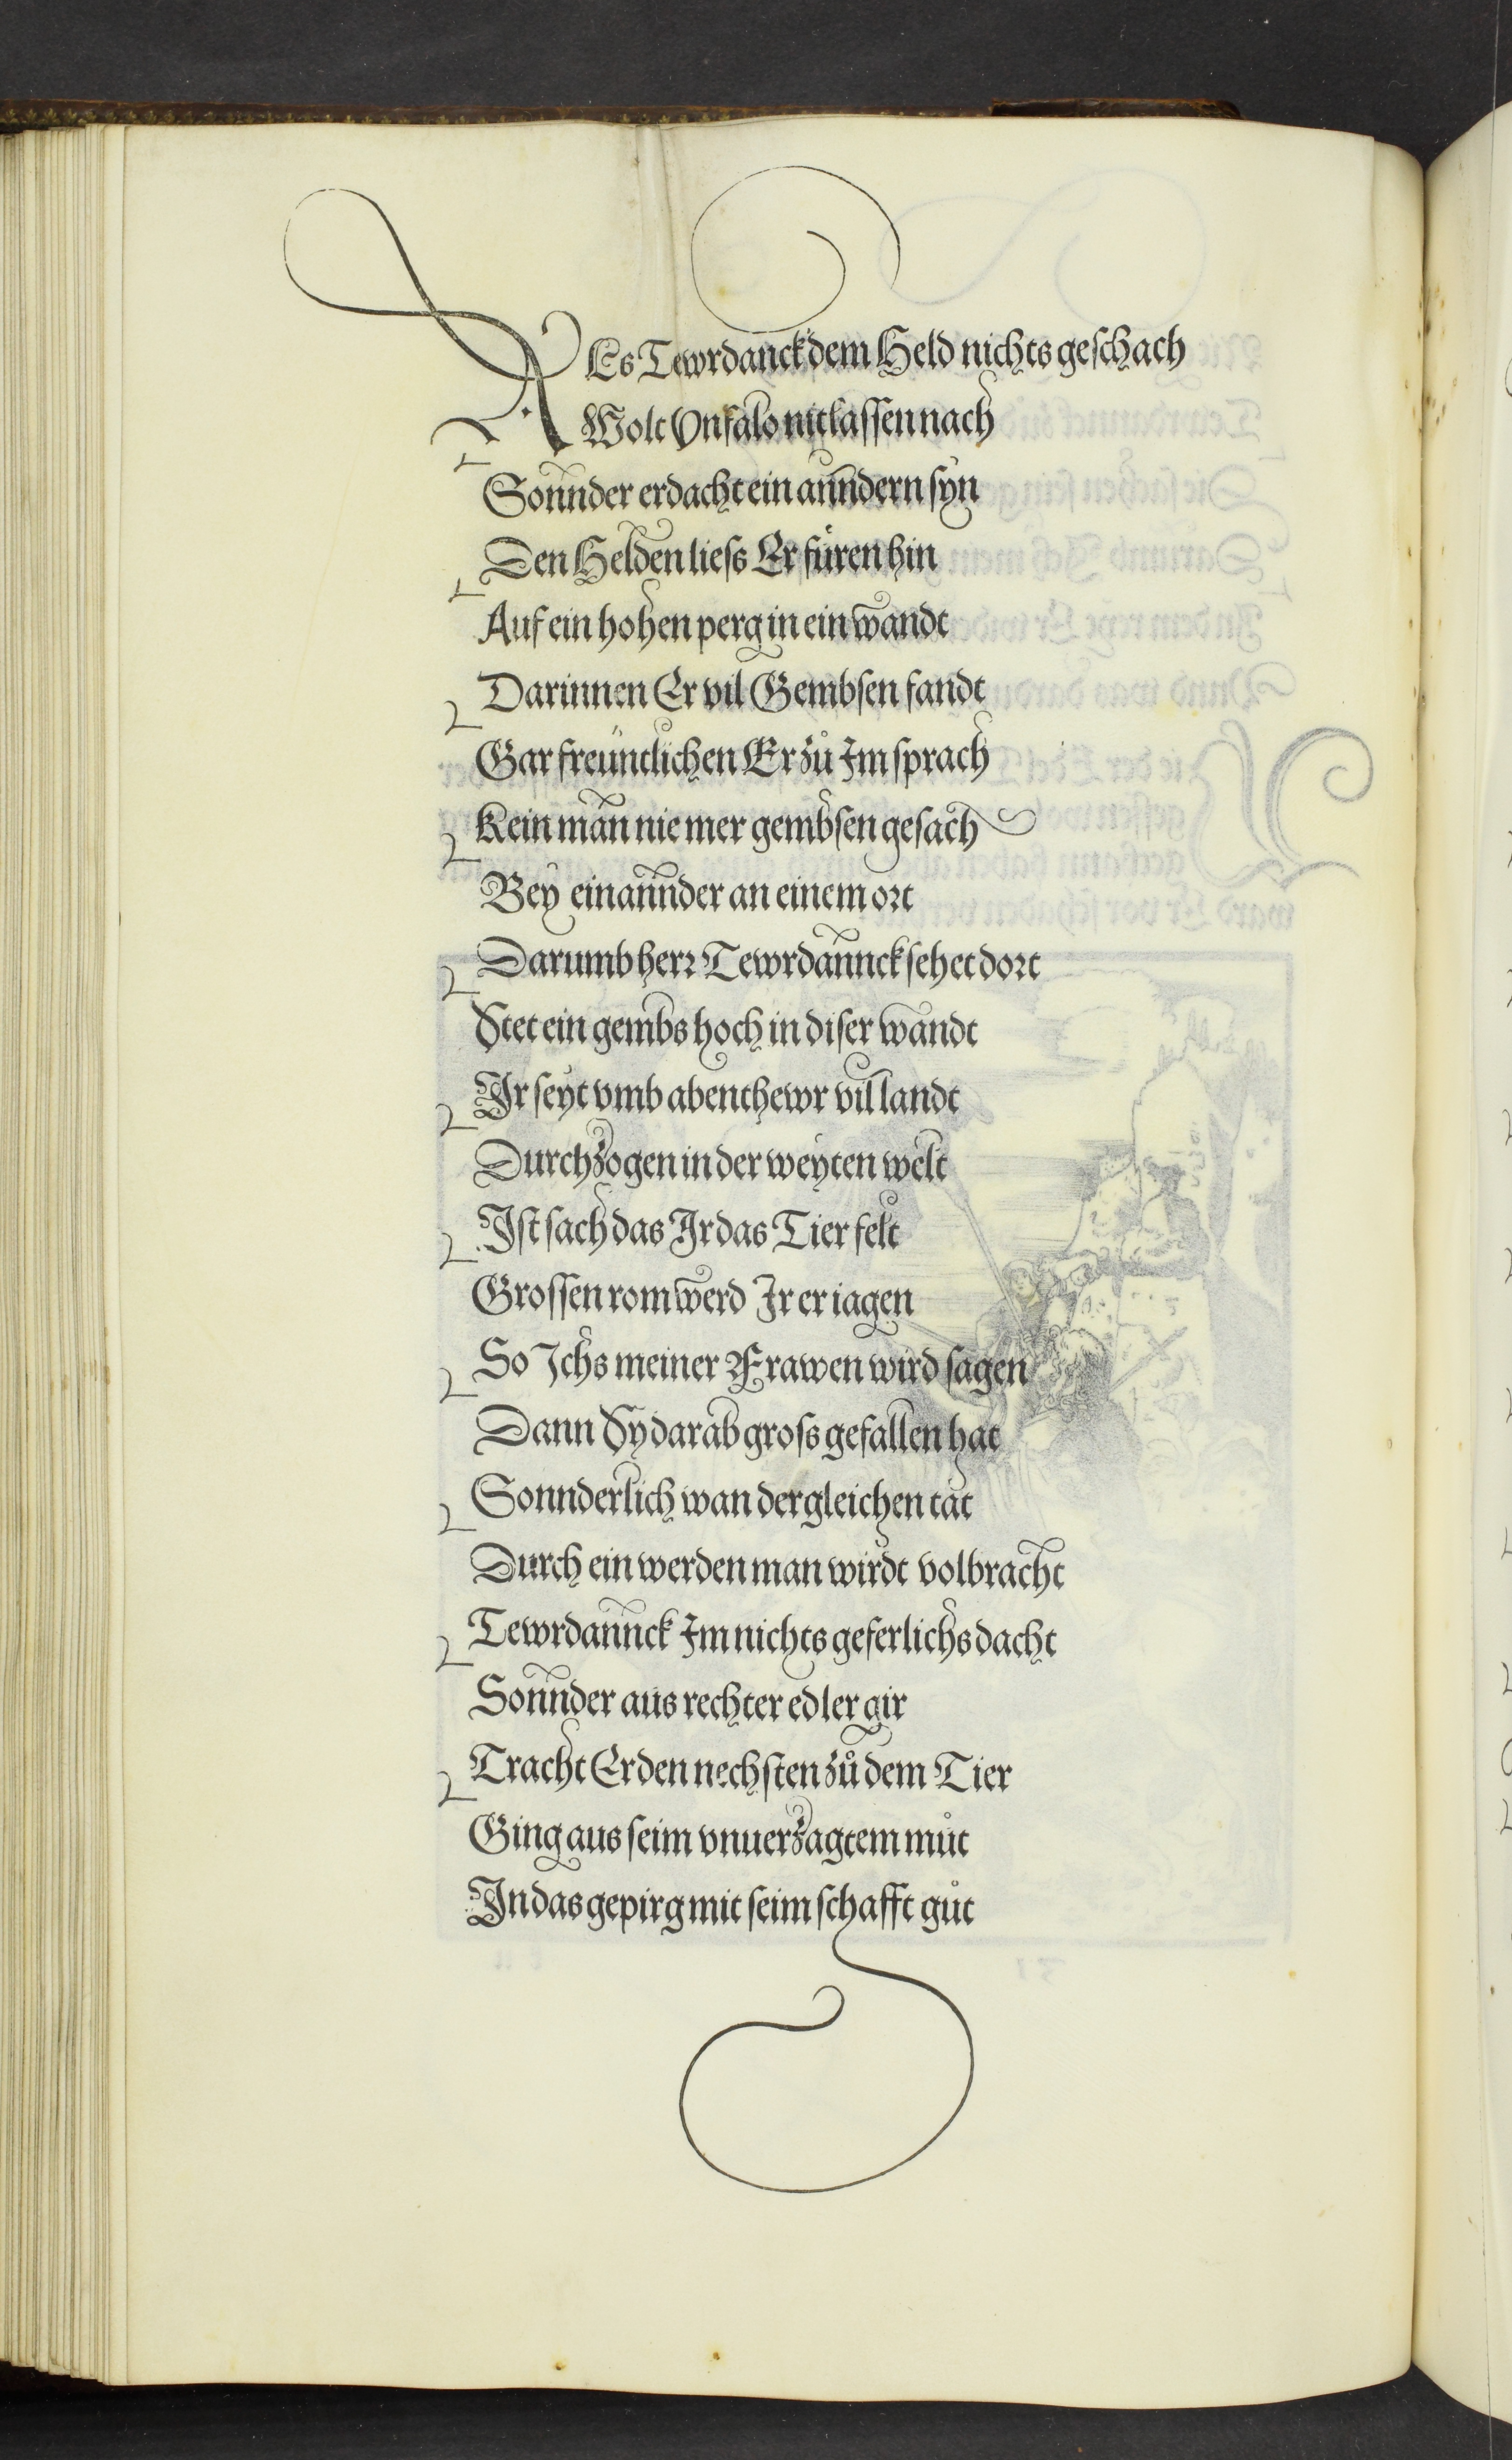 ALs Tewrdanck dem Held nichts geschach
Wolt Vnfalo nit lassen nach
Sonnder erdacht ein anndern syn
Den Helden liess Er füren hin
Auf ein hohen perg in ein wandt
Darinnen Er vil Gembsen fandt
Gar freuntlichen Er zů Im sprach
Kein man nie mer gembsen gesach
Bey einannder an einem ort
Darumb herr Tewrdannck sehet dort
Stet ein gembs hoch in diser wandt
Ir seyt vmb abenthewr vil landt
Durchzogen in der weyten welt
Ist sach das Ir das Tier felt
Grossen rom werd Ir er iagen
So Ichs meiner Frawen wird sagen
Dann Sy darab gross gefallen hat
Sonnderlich wan dergleichen tat
Durch ein werden man wirdt volbracht
Tewrdannck Im nichts geferlichs dacht
Sonnder aus rechter edler gir
Tracht Er den nechsten zů dem Tier
Ging aus seim vnuerzagtem můt
In das gepirg mit seim schafft gůt